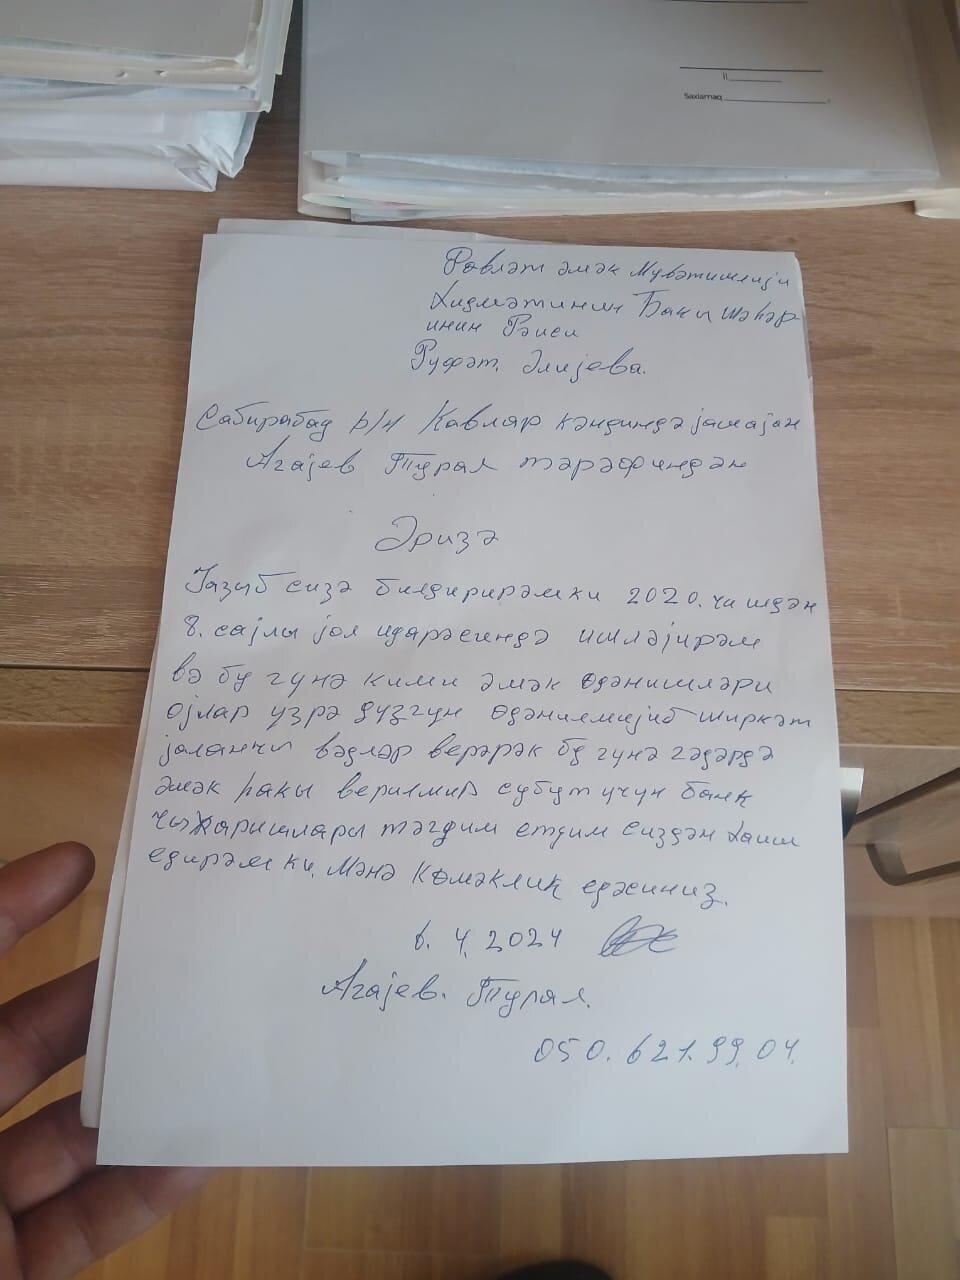 il
Saxlamaq
Дөвләт әмәк Мүвәтишлији
Хидмәтинин Бакы шәһәр
инин Рәиси
Руфәт. Әлијева.
Сабирабад р/н Кавлар кәндиндә јашајан
Агајев Турал тәрәфиндән
Әризә
Јазыб сизә билдирирәмки 2020. чи илдән
8. сајлы јол идарәсиндә ишләјирәм
вә бу гүнә кими әмәк өдәнишләри
ојлар үзрә дүзгүн өдәнилмијиб ширкәт
јаланчы вәдләр верәрәк бу гүнә гәдәрдә
әмәк һакы верилмир субут учун банк
чыхаришлары тәгдим етдим сиздән хаиш
едирәмки. Мәнә көмәклик едәсиниз.
6. 4. 2024
Агајев. Турал.
050. 621. 99. 04.